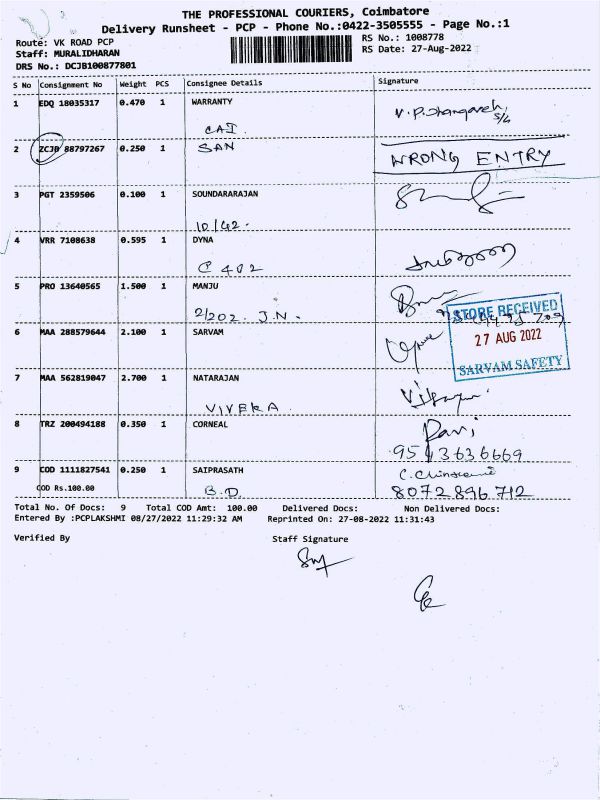 THE PROFESSIONAL COURIERS, Coimbatore
Delivery Runsheet - PCP - Phone No.:0422-3505555 - Page No.:1
Route: VK ROAD PCP
Staff: MURALIDHARAN
DRS No.: DCJB100877801
RS No.: 1008778
RS Date: 27-Aug-2022
S No Consignment No Weight PCS Consignee Details Signature
1 EDQ 18035317 0.470 1 WARRANTY
CAI
2 ZCJB 88797267 0.250 1 SAN WRONG ENTRY
3 PGT 2359506 0.100 1 SOUNDARARAJAN
10/42.
4 VRR 7108638 0.595 1 DYNA
C 402
5 PRO 13640565 1.500 1 MANJU
2/202. J.N.
STORE RECEIVED
27 AUG 2022
SARVAM SAFETY
6 MAA 288579644 2.100 1 SARVAM
7 MAA 562819047 2.700 1 NATARAJAN
VIVEKA
8 TRZ 200494188 0.350 1 CORNEAL
Ravi
9543636669
9 COD 1111827541 0.250 1 SAIPRASATH
COD Rs.100.00
B.D.
8072896712
Total No. Of Docs: 9 Total COD Amt: 100.00 Delivered Docs: Non Delivered Docs:
Entered By :PCPLAKSHMI 08/27/2022 11:29:32 AM Reprinted On: 27-08-2022 11:31:43
Verified By Staff Signature